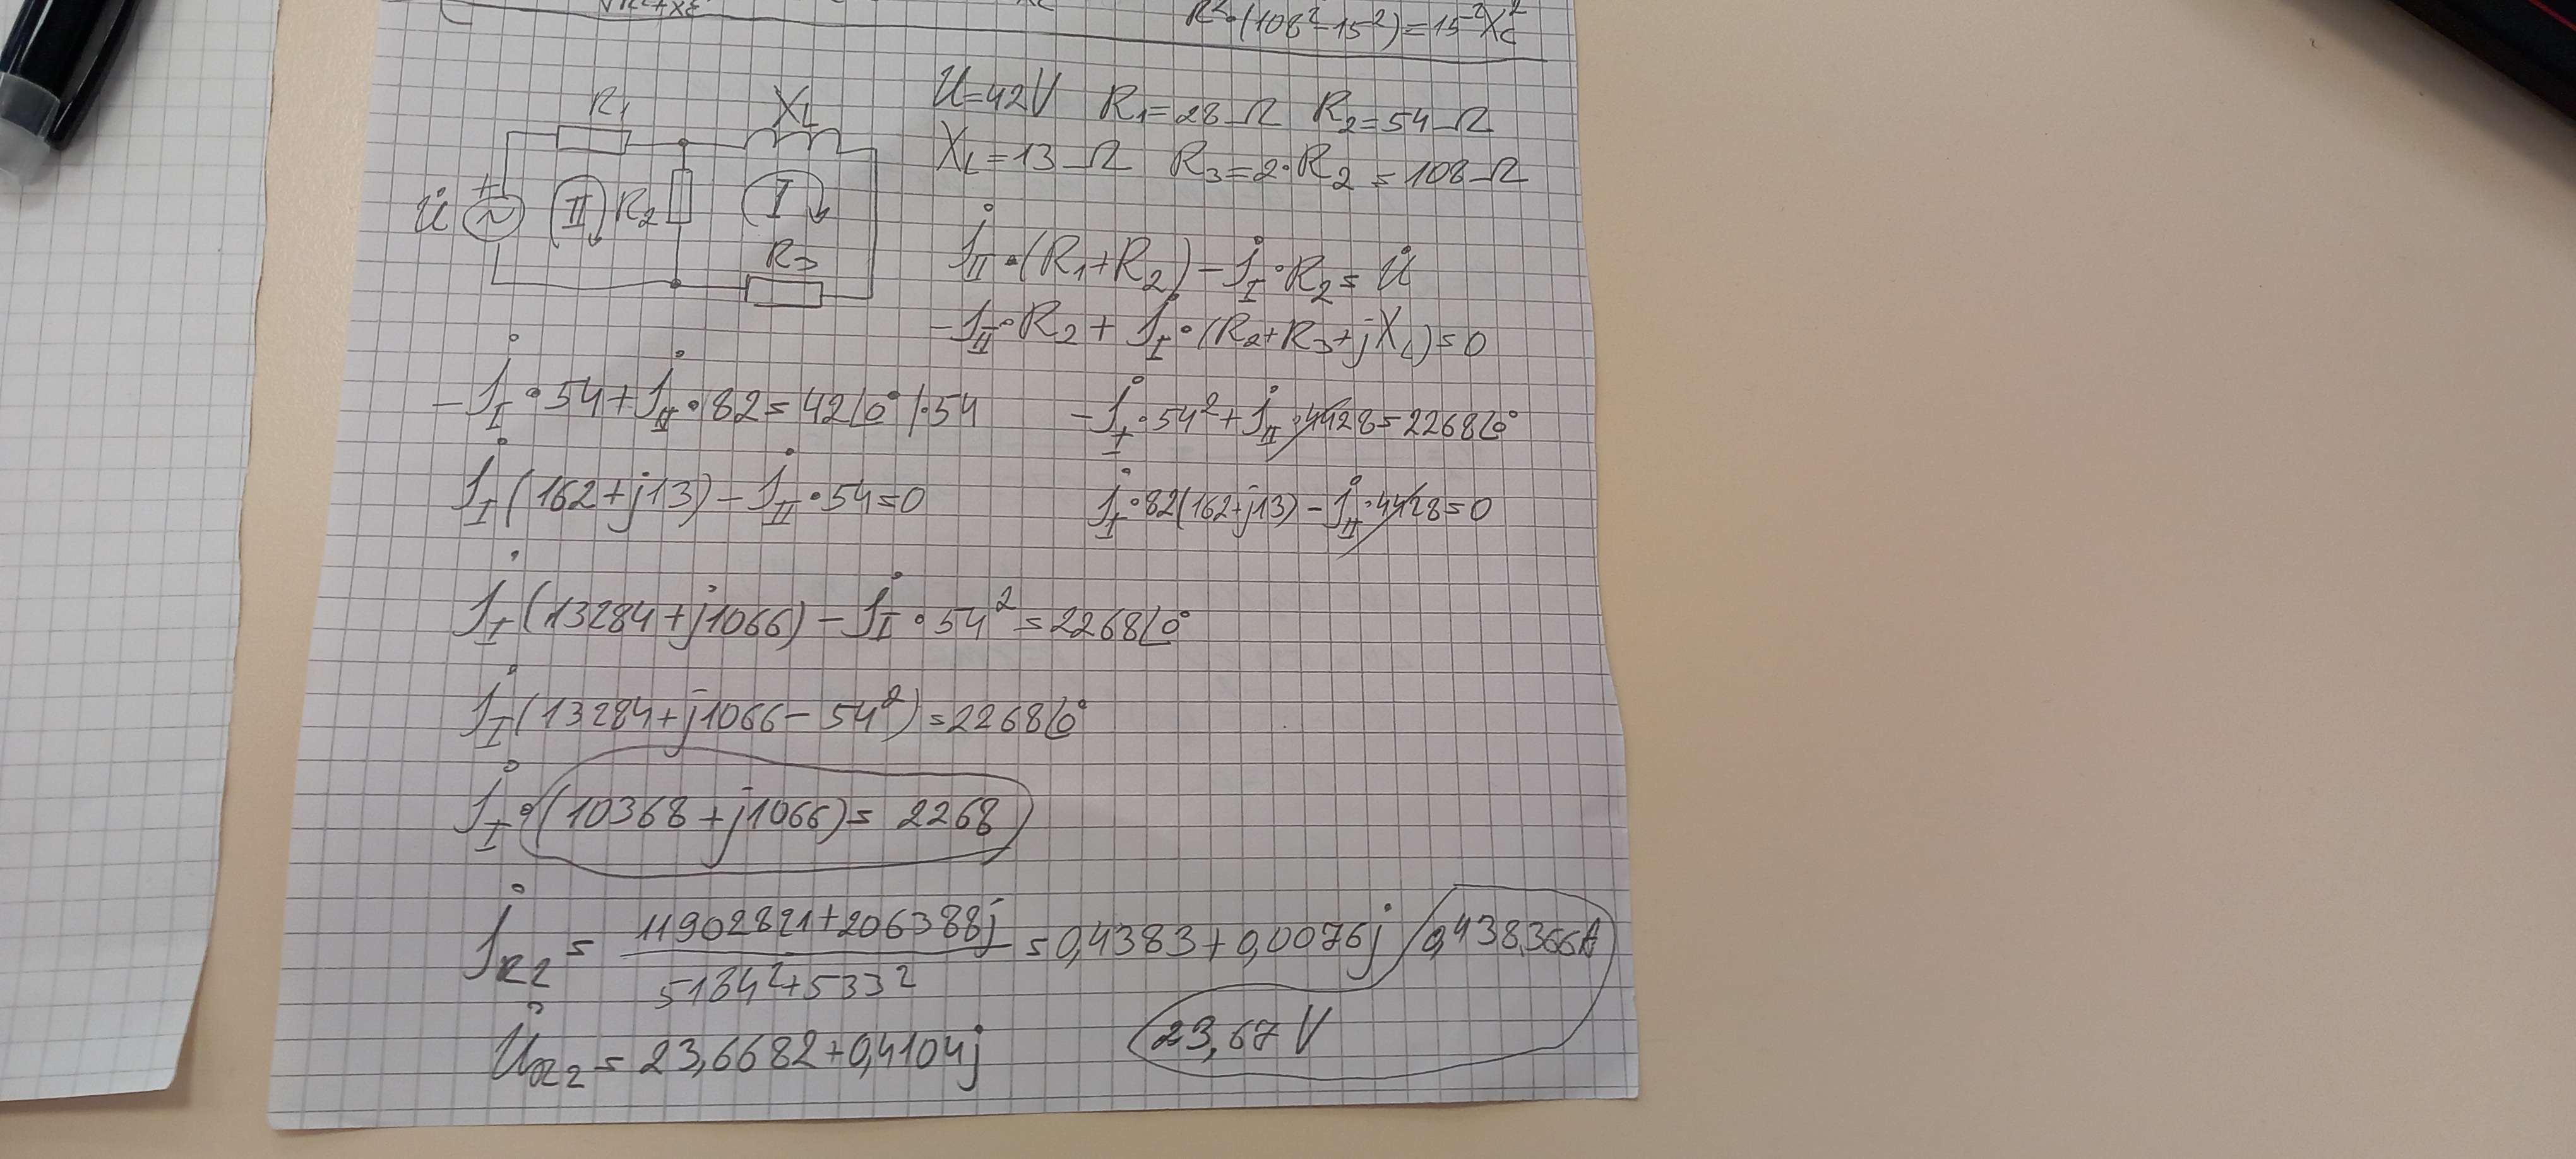 R²·(108²-15²)=15²X_C²
U=42V R₁=28Ω R₂=54Ω
X_L=13Ω R₃=2·R₂=108Ω
R₁ X_L
U̇ + ~ II R₂ I
R₃
İ_II·(R₁+R₂)-İ_I·R₂=U̇
-İ_II·R₂+İ_I·(R₂+R₃+jX_L)=0
-İ_I·54+İ_II·82=42∠0° /·54
-İ_I·54²+İ_II·4428=2268∠0°
İ_I(162+j13)-İ_II·54=0
İ_I·82(162+j13)-İ_II·4428=0
İ_I(13284+j1066)-İ_I·54²=2268∠0°
İ_I(13284+j1066-54²)=2268∠0°
İ_I·(10368+j1066)=2268
İ_R2=(11902821+206388j)/(5184²+533²)=0,4383+0,0076j / 0,438366A
U̇_R2=23,6682+0,4104j 23,67V